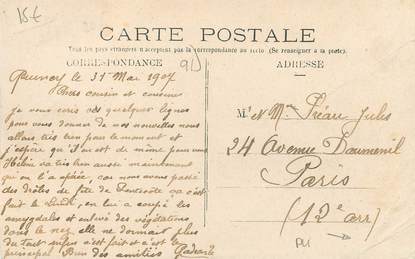 15€
CARTE POSTALE
Tous les pays étrangers n'acceptent pas la correspondance au recto. (Se renseigner à la poste).
CORRESPONDANCE
ADRESSE
91
le 31 Mai 1907
Chers cousin et cousine
Je vous écris ces quelques lignes
pour vous donner de nos nouvelles nous
allons très bien pour le moment et
j'espère qu'il en est de même pour vous
va très bien aussi maintenant
qu'on l'a opérée, car nous avons passé
des drôles de fête de Pentecôte ça c'est
fait le Lundi, on lui a coupé les
amygdales et enlevé des végétations
dans le nez, elle ne dormait plus
du tout enfin c'est fait et c'est le
principal Bien des amitiés
Mr & Mme Préau Jules
24 Avenue Daumenil
Paris
(12e arr)